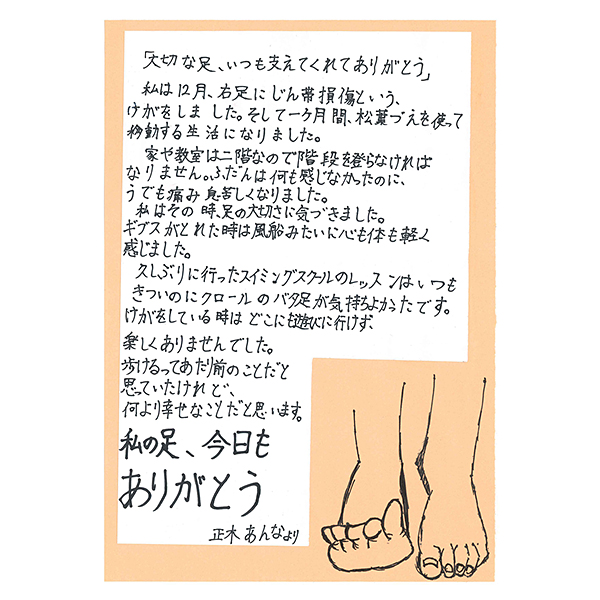 「大切な足、いつも支えてくれてありがとう」
私は12月、右足にじん帯損傷という、
けがをしました。そして一ヶ月間、松葉づえを使って
移動する生活になりました。
家や教室は二階なので階段を登らなければ
なりません。ふだんは何も感じなかったのに、
うでも痛み息苦しくなりました。
私はその時、足の大切さに気づきました。
ギブスがとれた時は風船みたいに心も体も軽く
感じました。
久しぶりに行ったスイミングスクールのレッスンはいつも
きついのにクロールのバタ足が気持ちよかったです。
けがをしている時はどこにも遊びに行けず、
楽しくありませんでした。
歩けるってあたり前のことだと
思っていたけれど、
何より幸せなことだと思います。
私の足、今日も
ありがとう
正木あんなより